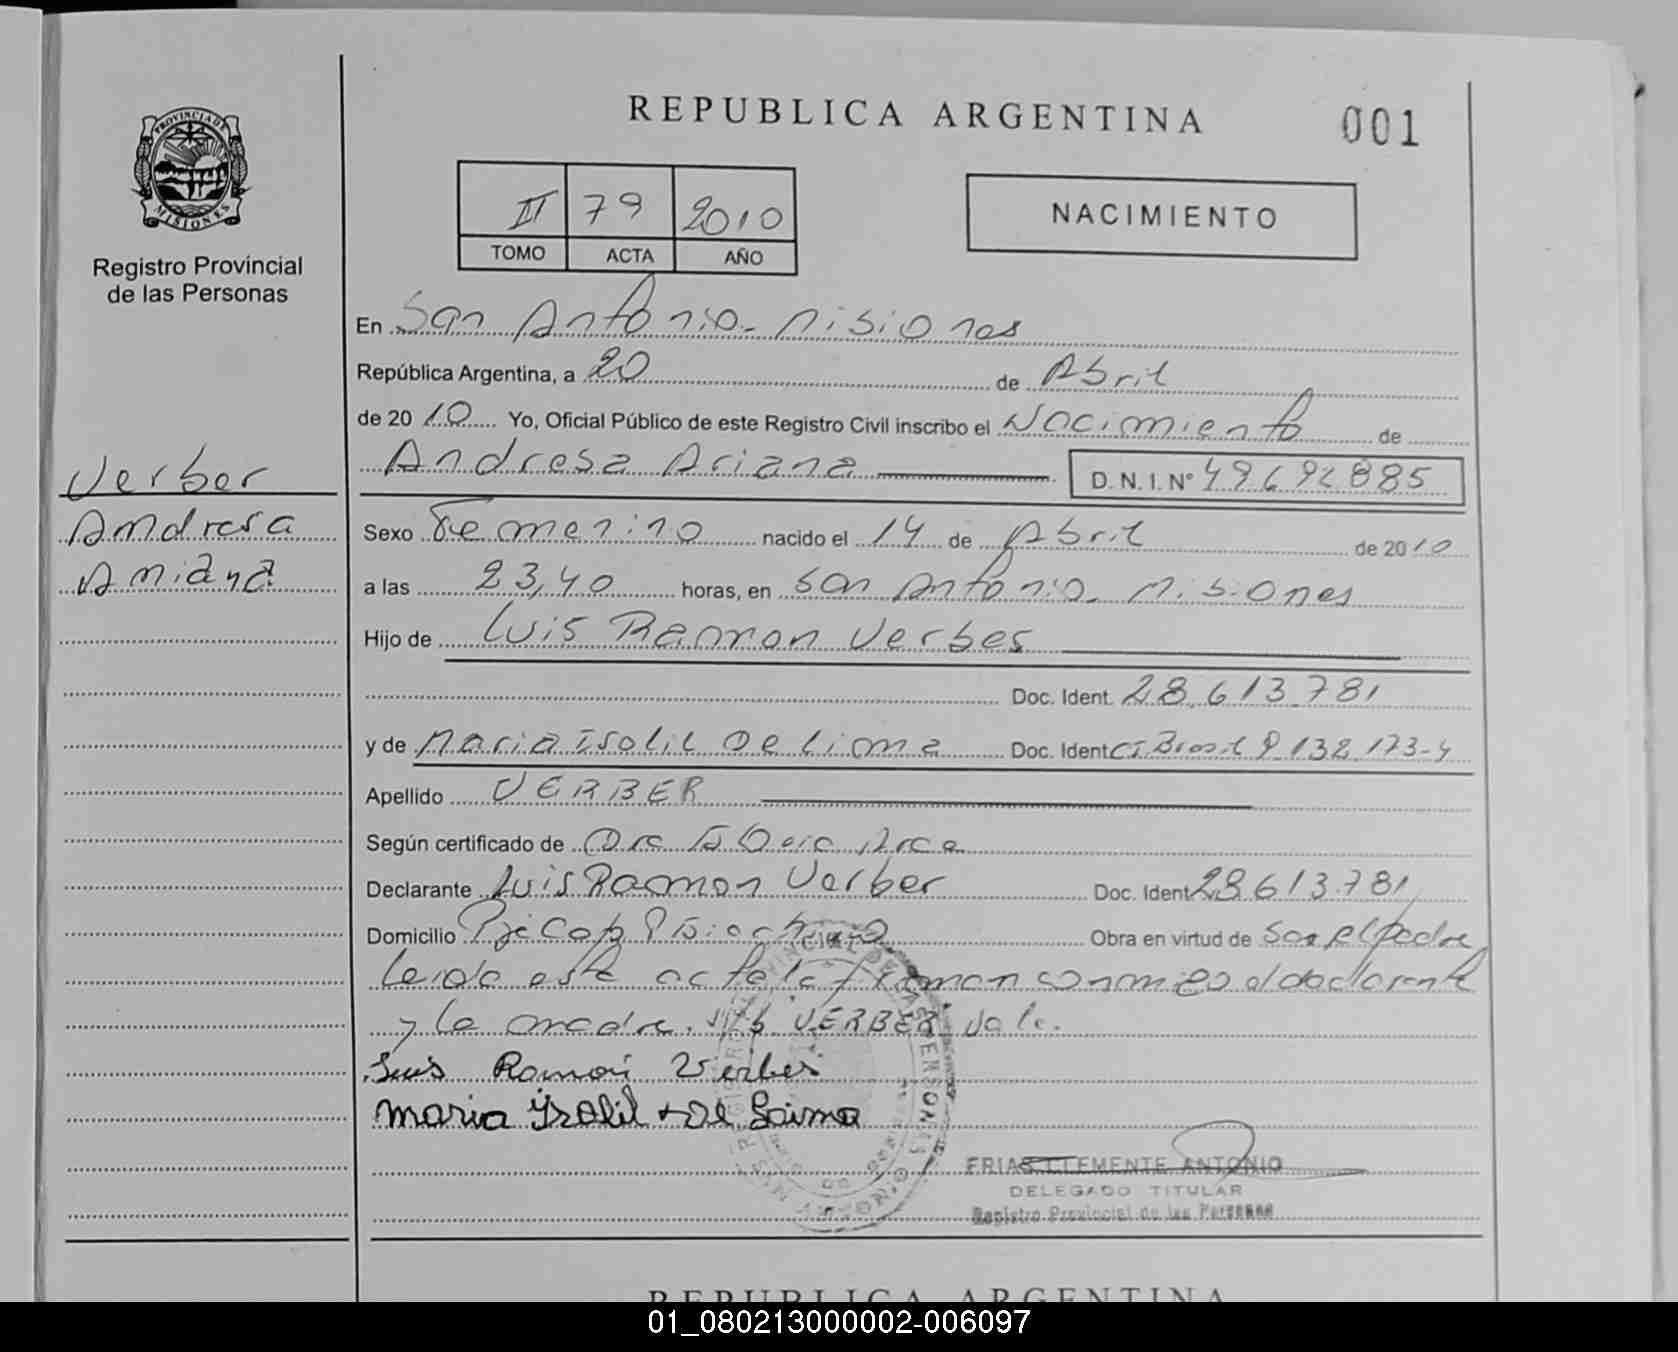 REPUBLICA ARGENTINA
001
PROVINCIA DE
MISIONES
Registro Provincial
de las Personas
II 79 2010
TOMO ACTA AÑO
NACIMIENTO
En San Antonio - Misiones
República Argentina, a 20 de Abril
de 20 10 Yo, Oficial Público de este Registro Civil inscribo el Nacimiento de
Andresa Ariana D.N.I. Nº 49692885
Verber
Andresa
Ariana
Sexo Femenino nacido el 14 de Abril de 2010
a las 23,40 horas, en San Antonio - Misiones
Hijo de Luis Ramon Verbes
Doc. Ident. 28.613.781
y de Maria Isolil De Lima Doc. Ident CI. Brasil 9.132.173-4
Apellido VERBER
Según certificado de Dra Arce
Declarante Luis Ramon Verber Doc. Ident 28.613.781
Domicilio Obra en virtud de
Leida este acta la firman conmigo el declarante
y la madre. VERBER Vale.
Luis Ramon Verber
Maria Izolil De Laima
FRIAS CLEMENTE ANTONIO
DELEGADO TITULAR
Registro Provincial de las Personas
REPUBLICA ARGENTINA
01_080213000002-006097